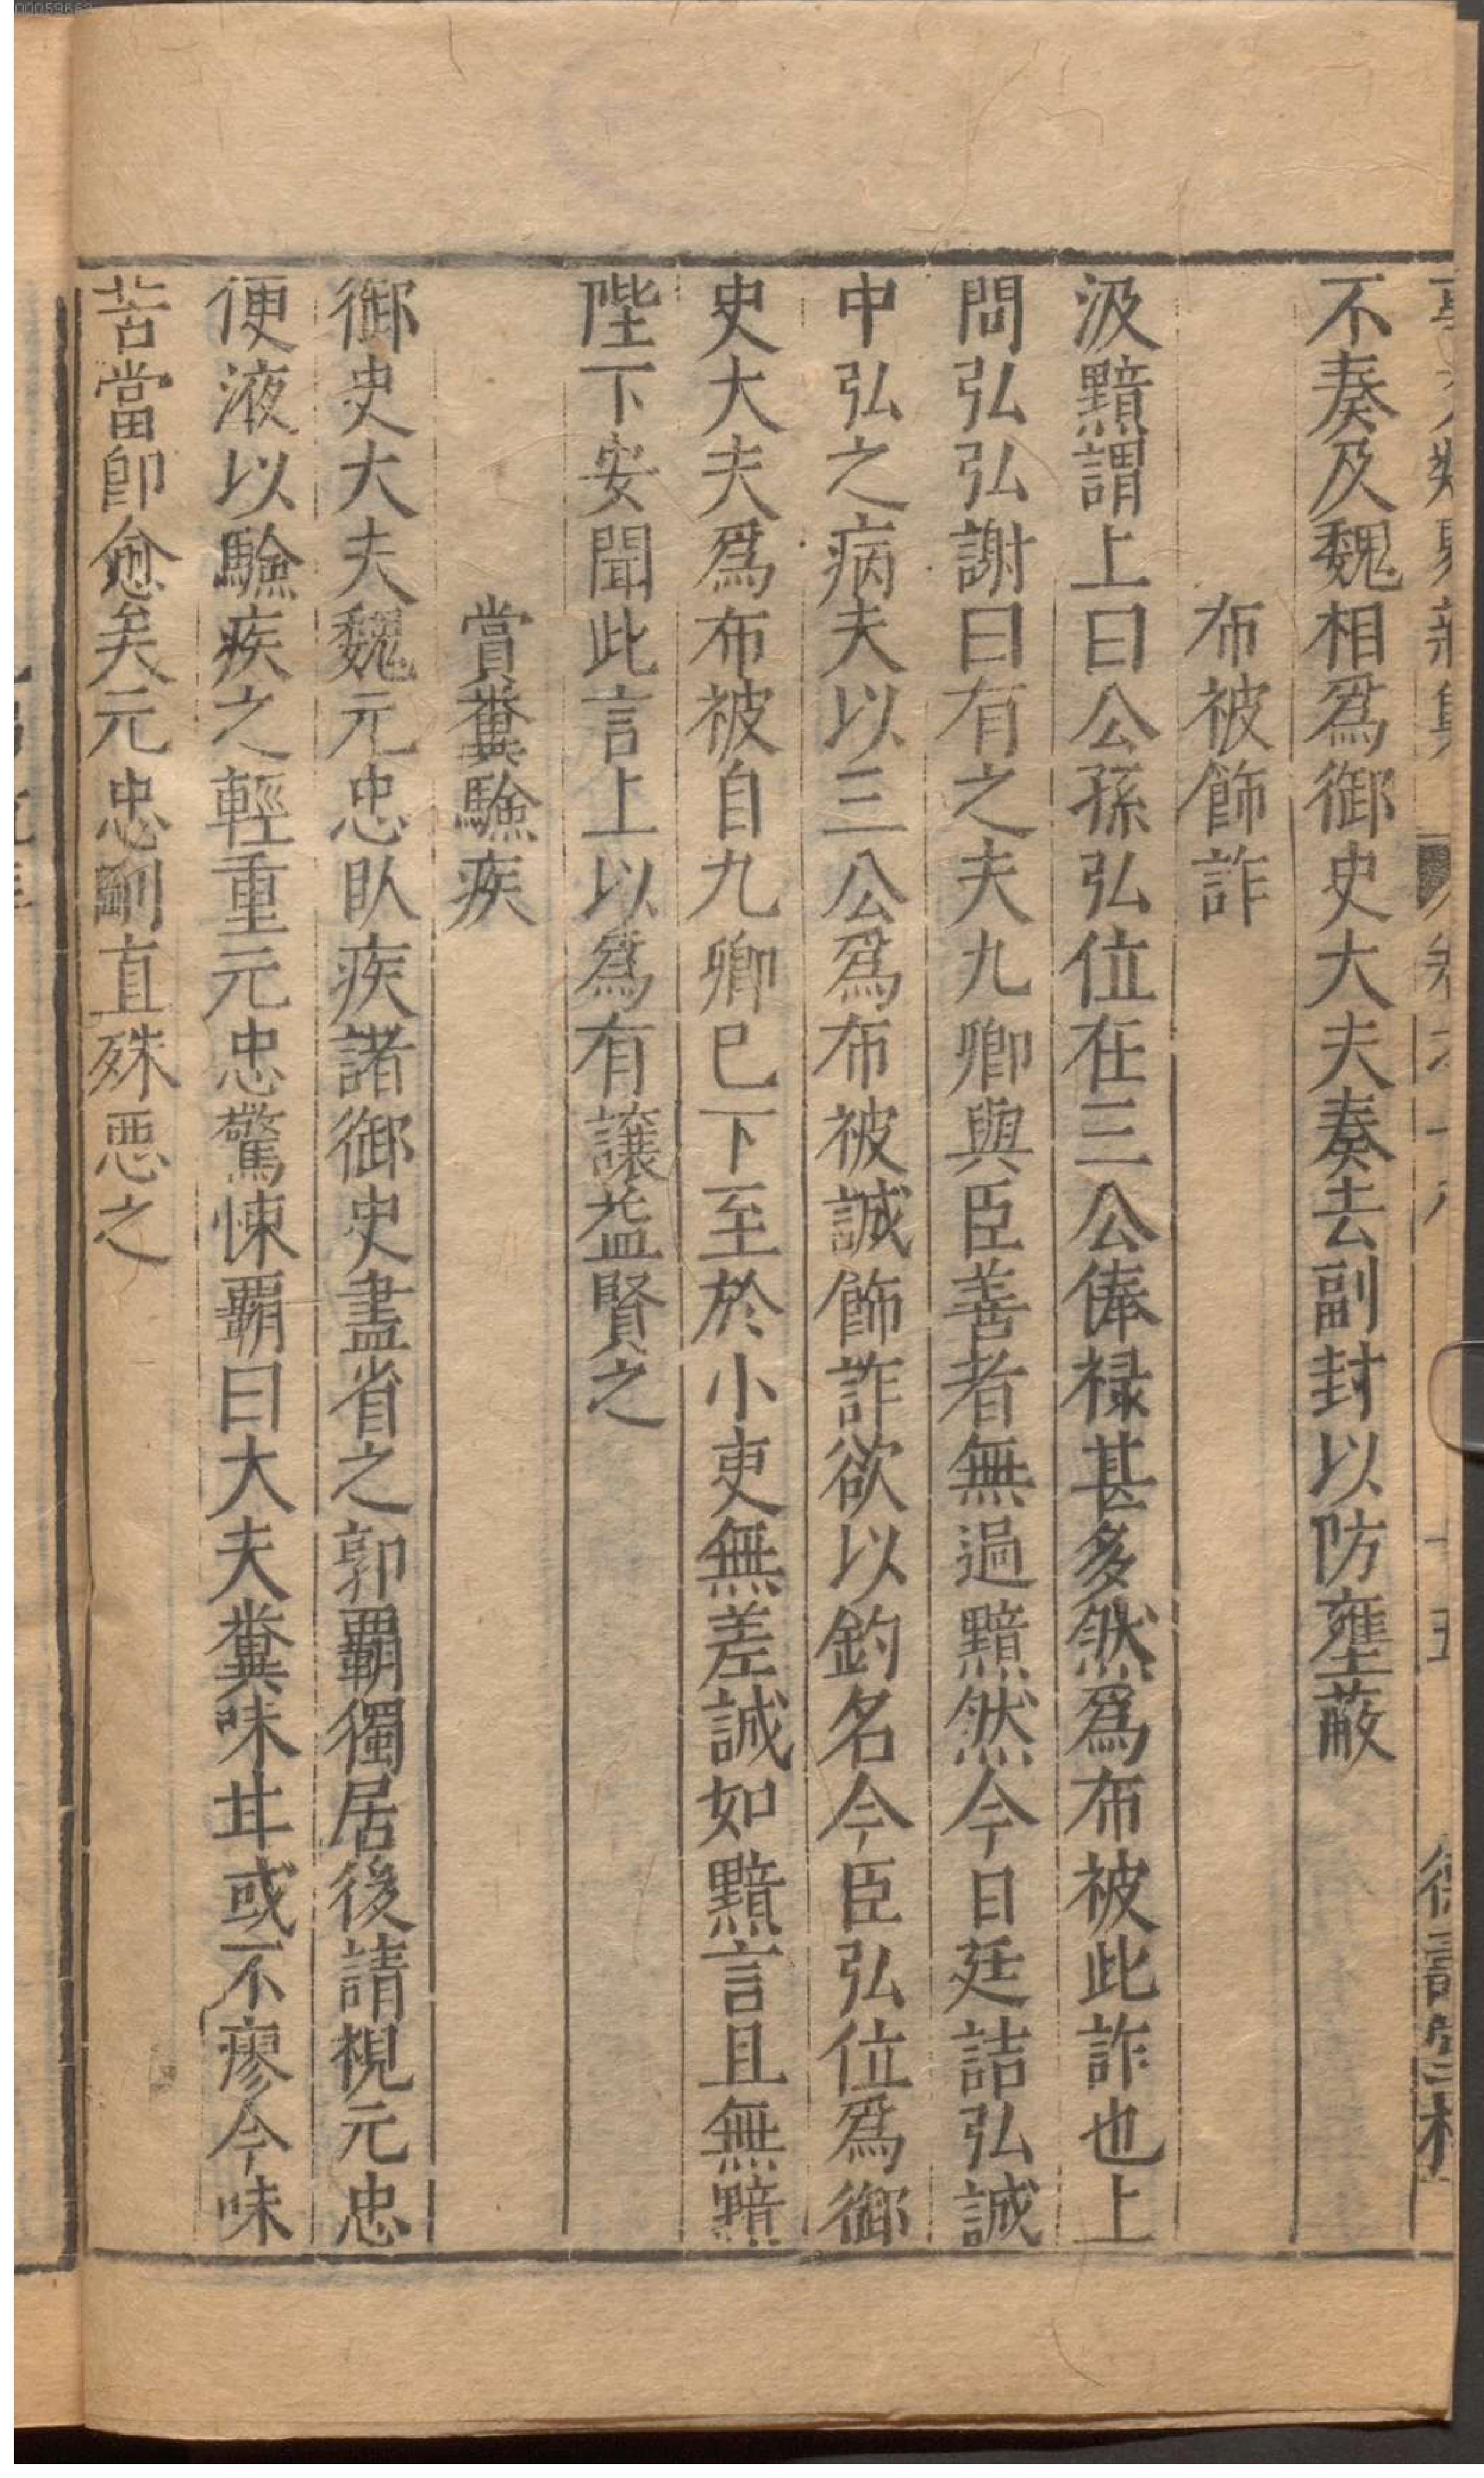 不奏及魏相爲御史大夫奏去副封以防壅蔽
布被飾詐
汲黯謂上曰公孫弘位在三公俸祿甚多然爲布被此詐也上
問弘弘謝曰有之夫九卿與臣善者無過黯然今日廷詰弘誠
中弘之病夫以三公爲布被誠飾詐欲以釣名今臣弘位爲御
史大夫爲布被自九卿已下至於小吏無差誠如黯言且無黯
陛下安聞此言上以爲有讓益賢之
賞糞驗疾
御史大夫魏元忠臥疾諸御史盡省之郭霸獨居後請視元忠
便液以驗疾之輕重元忠驚悚霸曰大夫糞味甘或不瘳今味
苦當卽愈矣元忠剛直殊惡之